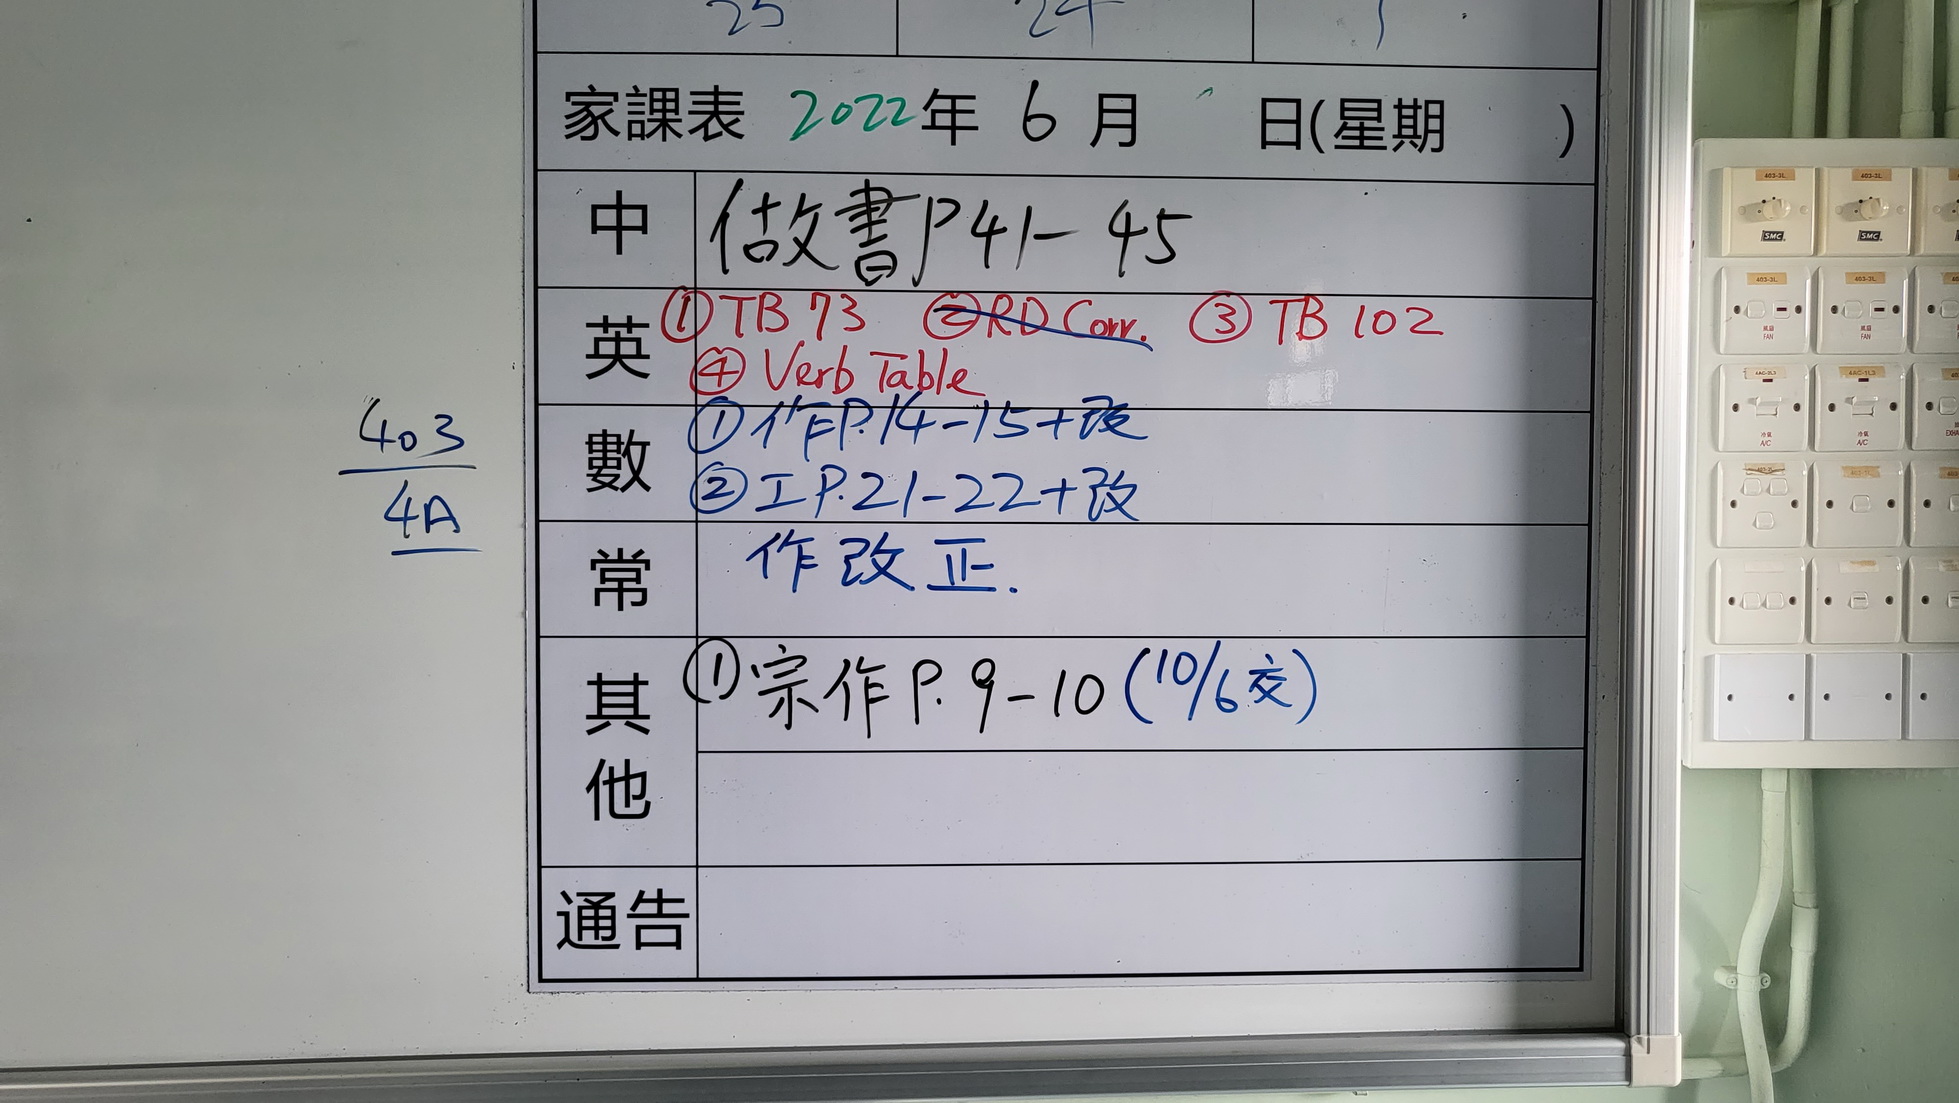 25 24 1
家課表 2022年 6 月 日(星期 )
中 做書P41-45
英 ①TB 73 ②RD Corr. ③TB 102
④Verb Table
數 ①作P.14-15+改
②工P.21-22+改
常 作改正.
其他 ①宗作P.9-10(10/6交)
通告
403
4A
403-3L
403-3L
SMC
SMC
403-3L
403-3L
風扇
FAN
風扇
FAN
4AC-2L3
4AC-1L3
冷氣
A/C
冷氣
A/C